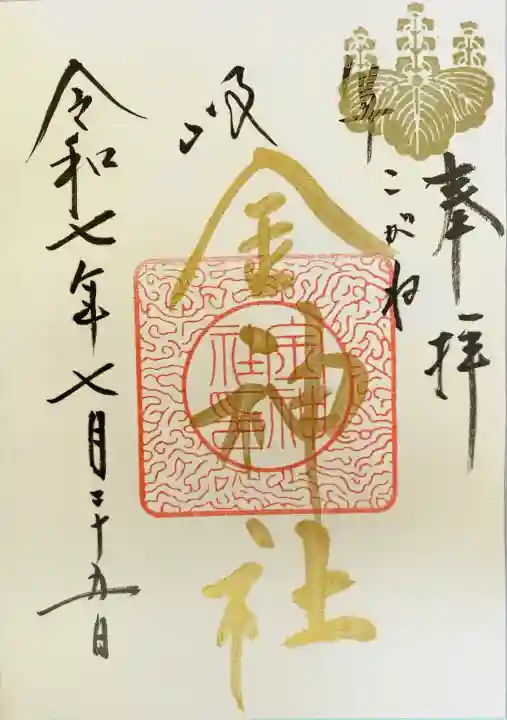 奉拝
こがね
金神社
令和七年七月二十五日